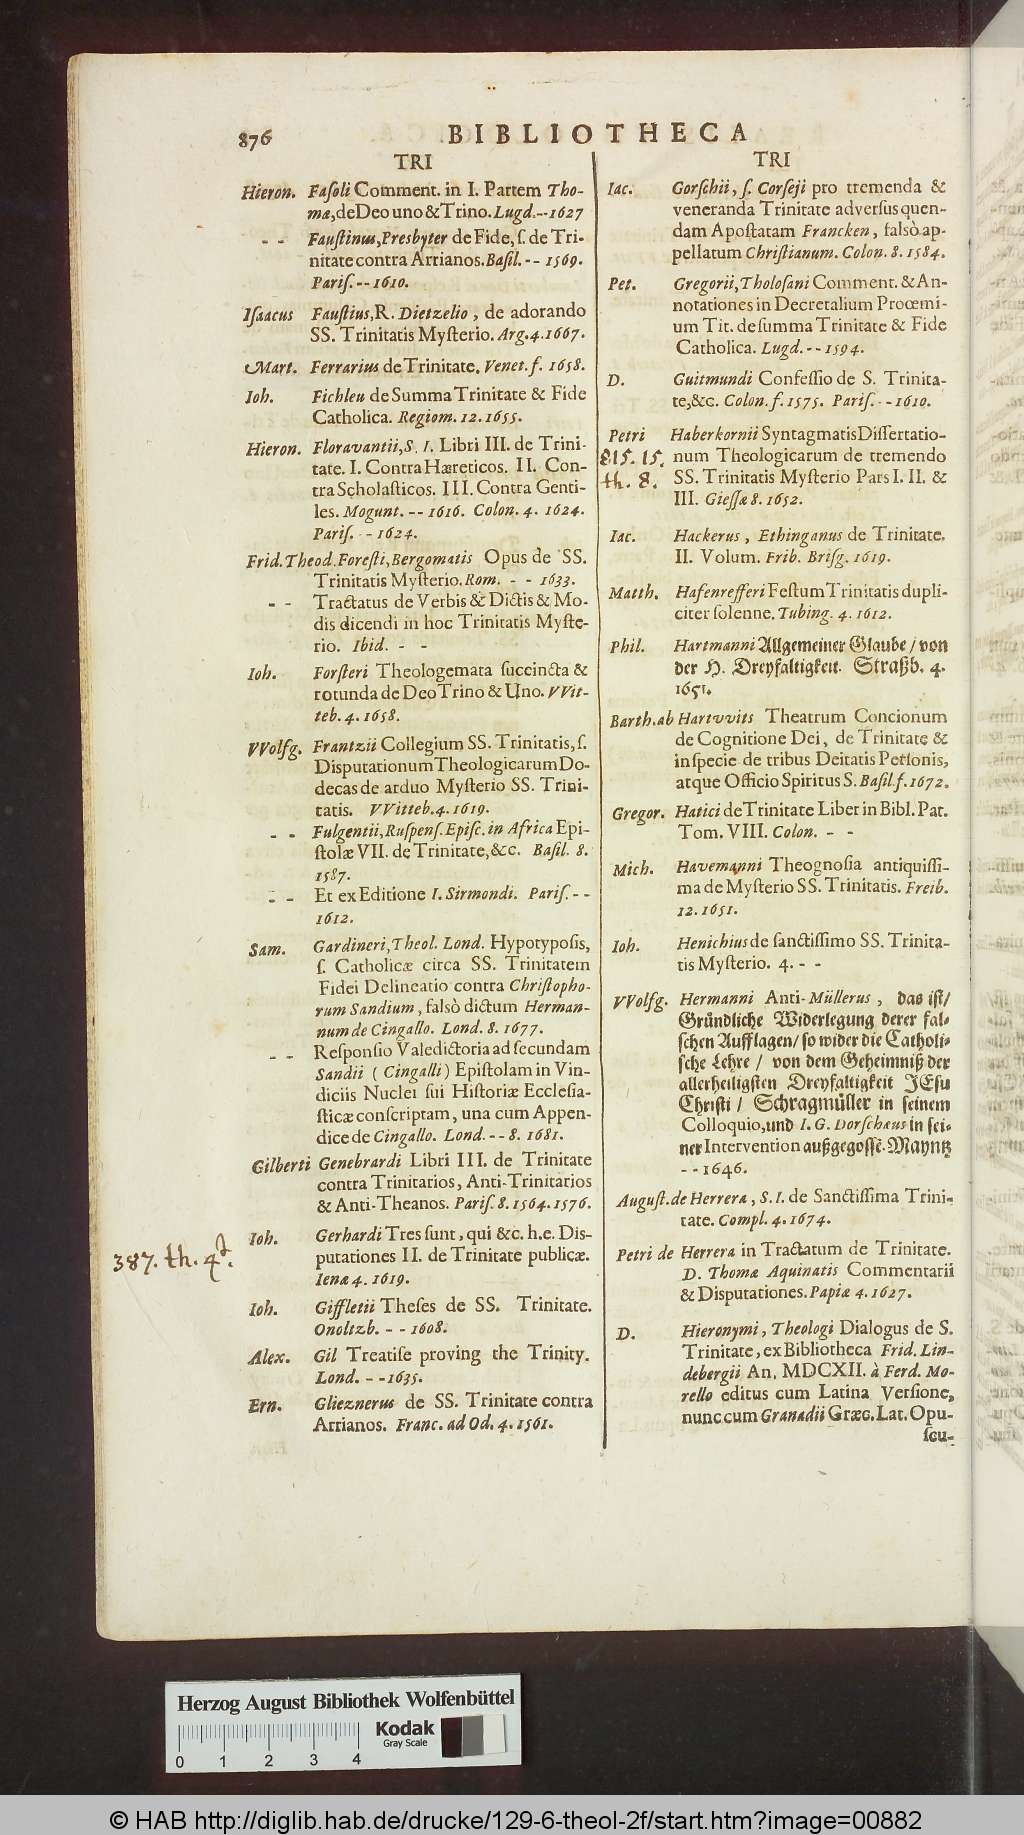 876 BIBLIOTHECA
TRI
Hieron. Faſoli Comment. in I. Partem Tho-
mæ, de Deo uno & Trino. Lugd. -- 1627
- - Fauſtinus, Presbyter de Fide, ſ. de Tri-
nitate contra Arrianos. Baſil. -- 1569.
Pariſ. -- 1610.
Iſaacus Fauſtius, R. Dietzelio, de adorando
SS. Trinitatis Myſterio. Arg. 4. 1667.
Mart. Ferrarius de Trinitate. Venet. f. 1658.
Ioh. Fichleu de Summa Trinitate & Fide
Catholica. Regiom. 12. 1655.
Hieron. Floravantii, S. I. Libri III. de Trini-
tate. I. Contra Hæreticos. II. Con-
tra Scholaſticos. III. Contra Genti-
les. Mogunt. -- 1616. Colon. 4. 1624.
Pariſ. - 1624.
Frid. Theod. Foreſti, Bergomatis Opus de SS.
Trinitatis Myſterio. Rom. - - 1633.
- - Tractatus de Verbis & Dictis & Mo-
dis dicendi in hoc Trinitatis Myſte-
rio. Ibid. - -
Ioh. Forſteri Theologemata ſuccincta &
rotunda de Deo Trino & Uno. VVit-
teb. 4. 1658.
VVolfg. Frantzii Collegium SS. Trinitatis, ſ.
Disputationum Theologicarum Do-
decas de arduo Myſterio SS. Trini-
tatis. VVitteb. 4. 1619.
- - Fulgentii, Ruſpenſ. Epiſc. in Africa Epi-
ſtolæ VII. de Trinitate, &c. Baſil. 8.
1587.
- - Et ex Editione I. Sirmondi. Pariſ. - -
1612.
Sam. Gardineri, Theol. Lond. Hypotypoſis,
ſ. Catholicæ circa SS. Trinitatem
Fidei Delineatio contra Chriſtopho-
rum Sandium, falsò dictum Herman-
num de Cingallo. Lond. 8. 1677.
- - Reſponſio Valedictoria ad ſecundam
Sandii (Cingalli) Epiſtolam in Vin-
diciis Nuclei ſui Hiſtoriæ Eccleſia-
ſticæ conſcriptam, una cum Appen-
dice de Cingallo. Lond. -- 8. 1681.
Gilberti Genebrardi Libri III. de Trinitate
contra Trinitarios, Anti-Trinitarios
& Anti-Theanos. Pariſ. 8. 1564. 1576.
Ioh. Gerhardi Tres ſunt, qui &c. h. e. Dis-
putationes II. de Trinitate publicæ.
Ienæ 4. 1619.
387. th. 4t.
Ioh. Giffletii Theſes de SS. Trinitate.
Onoltzb. - - 1608.
Alex. Gil Treatiſe proving the Trinity.
Lond. - - 1635.
Ern. Glieznerus de SS. Trinitate contra
Arrianos. Franc. ad Od. 4. 1561.
TRI
Iac. Gorſchii, ſ. Corſeji pro tremenda &
veneranda Trinitate adverſus quen-
dam Apoſtatam Francken, falsò ap-
pellatum Chriſtianum. Colon. 8. 1584.
Pet. Gregorii, Tholoſani Comment. & An-
notationes in Decretalium Prœmi-
um Tit. de ſumma Trinitate & Fide
Catholica. Lugd. -- 1594.
D. Guitmundi Confeſſio de S. Trinita-
te, &c. Colon. f. 1575. Pariſ. -- 1610.
Petri Haberkornii Syntagmatis Diſſertatio-
num Theologicarum de tremendo
SS. Trinitatis Myſterio Pars I. II. &
III. Gieſſæ 8. 1652.
815. 15.
th. 8.
Iac. Hackerus, Ethinganus de Trinitate.
II. Volum. Frib. Briſg. 1619.
Matth. Hafenrefferi Feſtum Trinitatis dupli-
citer ſolenne. Tubing. 4. 1612.
Phil. Hartmanni Allgemeiner Glaube / von
der H. Dreyfaltigkeit. Straßb. 4.
1651.
Barth. ab Hartvvits Theatrum Concionum
de Cognitione Dei, de Trinitate &
inſpecie de tribus Deitatis Perſonis,
atque Officio Spiritus S. Baſil. f. 1672.
Gregor. Hatici de Trinitate Liber in Bibl. Pat.
Tom. VIII. Colon. - -
Mich. Havemanni Theognoſia antiquiſſi-
ma de Myſterio SS. Trinitatis. Freib.
12. 1651.
Ioh. Henichius de ſanctiſſimo SS. Trinita-
tis Myſterio. 4. - -
VVolfg. Hermanni Anti-Müllerus, das iſt/
Gründliche Widerlegung derer fal-
ſchen Aufflagen/ ſo wider die Catholi-
ſche Lehre / von dem Geheimniß der
allerheiligſten Dreyfaltigkeit JEſu
Chriſti / Schragmüller in ſeinem
Colloquio, und I. G. Dorſchæus in ſei-
ner Intervention außgegoſſē. Mayntz
- - 1646.
Auguſt. de Herrera, S. I. de Sanctiſſima Trini-
tate. Compl. 4. 1674.
Petri de Herrera in Tractatum de Trinitate.
D. Thomæ Aquinatis Commentarii
& Disputationes. Papiæ 4. 1627.
D. Hieronymi, Theologi Dialogus de S.
Trinitate, ex Bibliotheca Frid. Lin-
debergii An. MDCXII. à Ferd. Mo-
rello editus cum Latina Verſione,
nunc cum Granadii Græc. Lat. Opu-
ſcu-
Herzog August Bibliothek Wolfenbüttel
Kodak
Gray Scale
0 1 2 3 4
© HAB http://diglib.hab.de/drucke/129-6-theol-2f/start.htm?image=00882